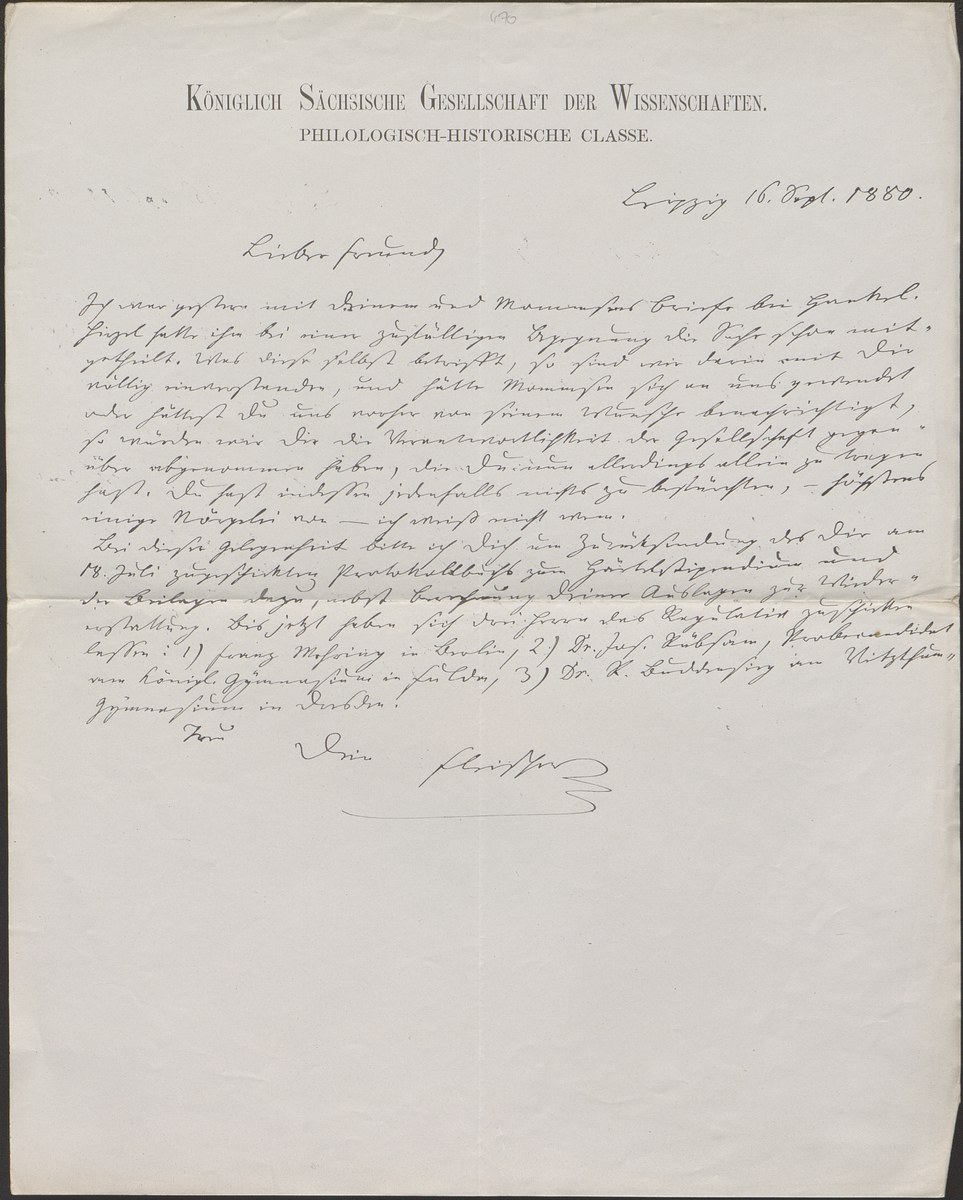 470
KÖNIGLICH SÄCHSISCHE GESELLSCHAFT DER WISSENSCHAFTEN.
PHILOLOGISCH-HISTORISCHE CLASSE.
Leipzig 16. Sept. 1880.
Lieber Freund,
Ich war gestern mit Deinem und Mommsens Briefe bei Hankel.
Hirzel hatte ihm bei einer zufälligen Begegnung die Sache schon mit-
getheilt. Was diese selbst betrifft, so sind wir darin mit Dir
völlig einverstanden, und hätte Mommsen sich an uns gewendet
oder hättest Du uns vorher von seinem Wunsche benachrichtigt,
so würden wir Dir die Verantwortlichkeit der Gesellschaft gegen-
über abgenommen haben, die Du nun allerdings allein zu tragen
hast. Du hast indessen jedenfalls nichts zu befürchten, – höchstens
einige Nörgelei von – ich weiß nicht wem.
Bei dieser Gelegenheit bitte ich Dich um Zurücksendung des Dir am
18. Juli zugeschickten Protokollbuchs zum Härtelstipendium und
der Beilagen dazu, nebst Berechnung Deiner Auslagen zur Wieder-
erstattung. Bis jetzt haben sich drei Herren das Regulativ zuschicken
lassen: 1) Franz Mehring in Berlin, 2) Dr. Jos. Rübsam, Probecandidat
am Königl. Gymnasium in Fulda, 3) Dr. R. Buddensieg am Vitzthum-
Gymnasium in Dresden.
Treu
Dein Fleischer